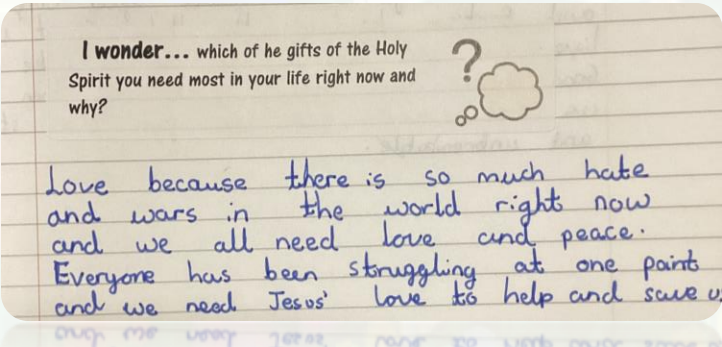 I wonder... which of he gifts of the Holy
Spirit you need most in your life right now and
why?
?
Love because there is so much hate
and wars in the world right now
and we all need love and peace.
Everyone has been struggling at one point
and we need Jesus' love to help and save